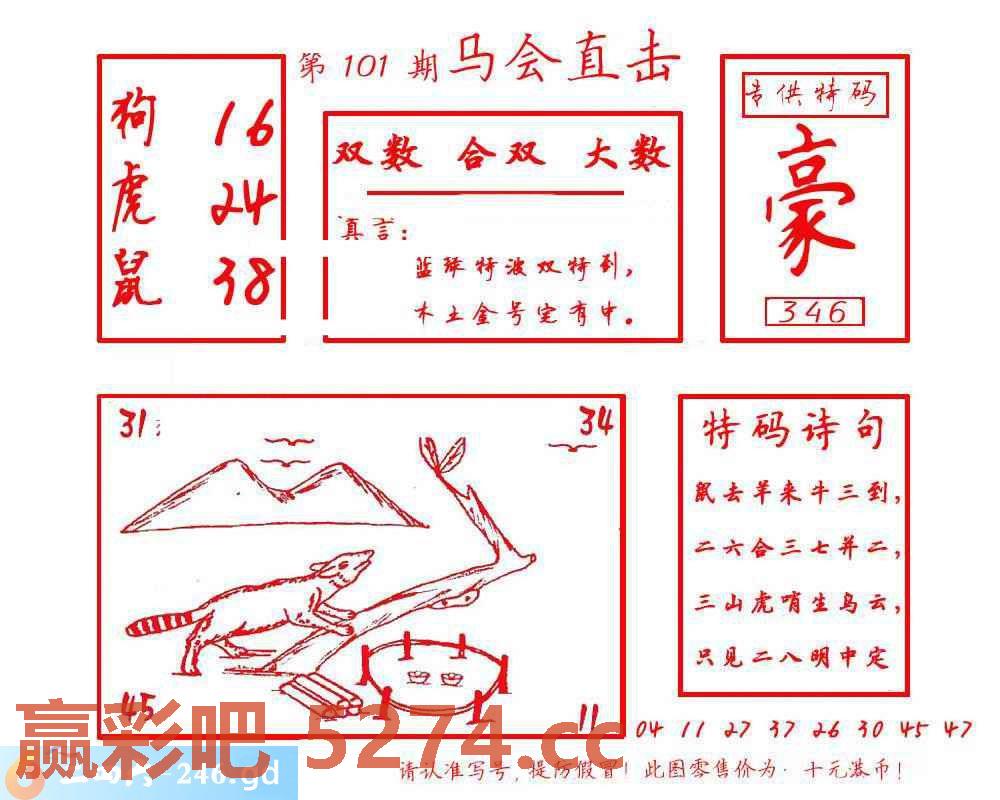 第 101 期 马会直击
狗 16
虎 24
鼠 38
双数 合双 大数
真言：
蓝珠特波双特到，
木土金号定有中。
专供特码
豪
346
31
34
45
11
特码诗句
鼠去羊来牛三到，
二六合三七并二，
三山虎哨生乌云，
只见二八明中定
04 11 27 37 26 30 45 47
赢彩吧 5274.cc
-246.gd
请认准写号，提防假冒！此图零售价为：十元港币！